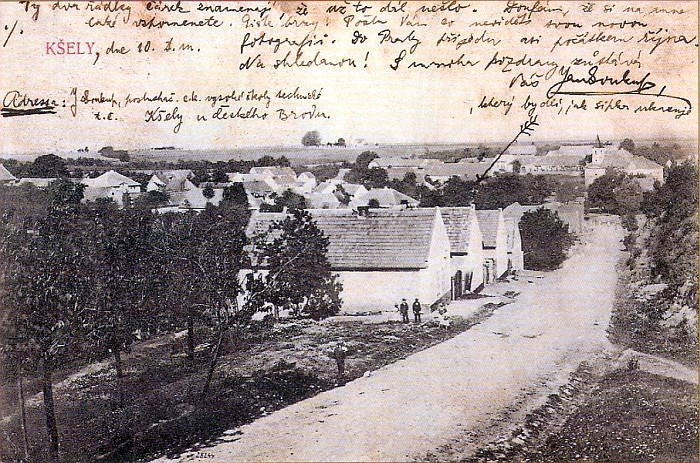 Ty dvě řádky čárek znamenají že už to dál nešlo. Doufám, že si na mne
také vzpomenete. Pište brzy! Pošlu Vám co nevidět svou novou
fotografii. Do Prahy přijedu asi počátkem října
Na shledanou! S mnoha pozdravy zůstává
Váš Jan Doukup,
který bydlí, jak šipka ukazuje
KŠELY, dne 10. m.
Adressa: J Doukup, posluchač c.k. vysoké školy technické
Kšely u českého Brodu.